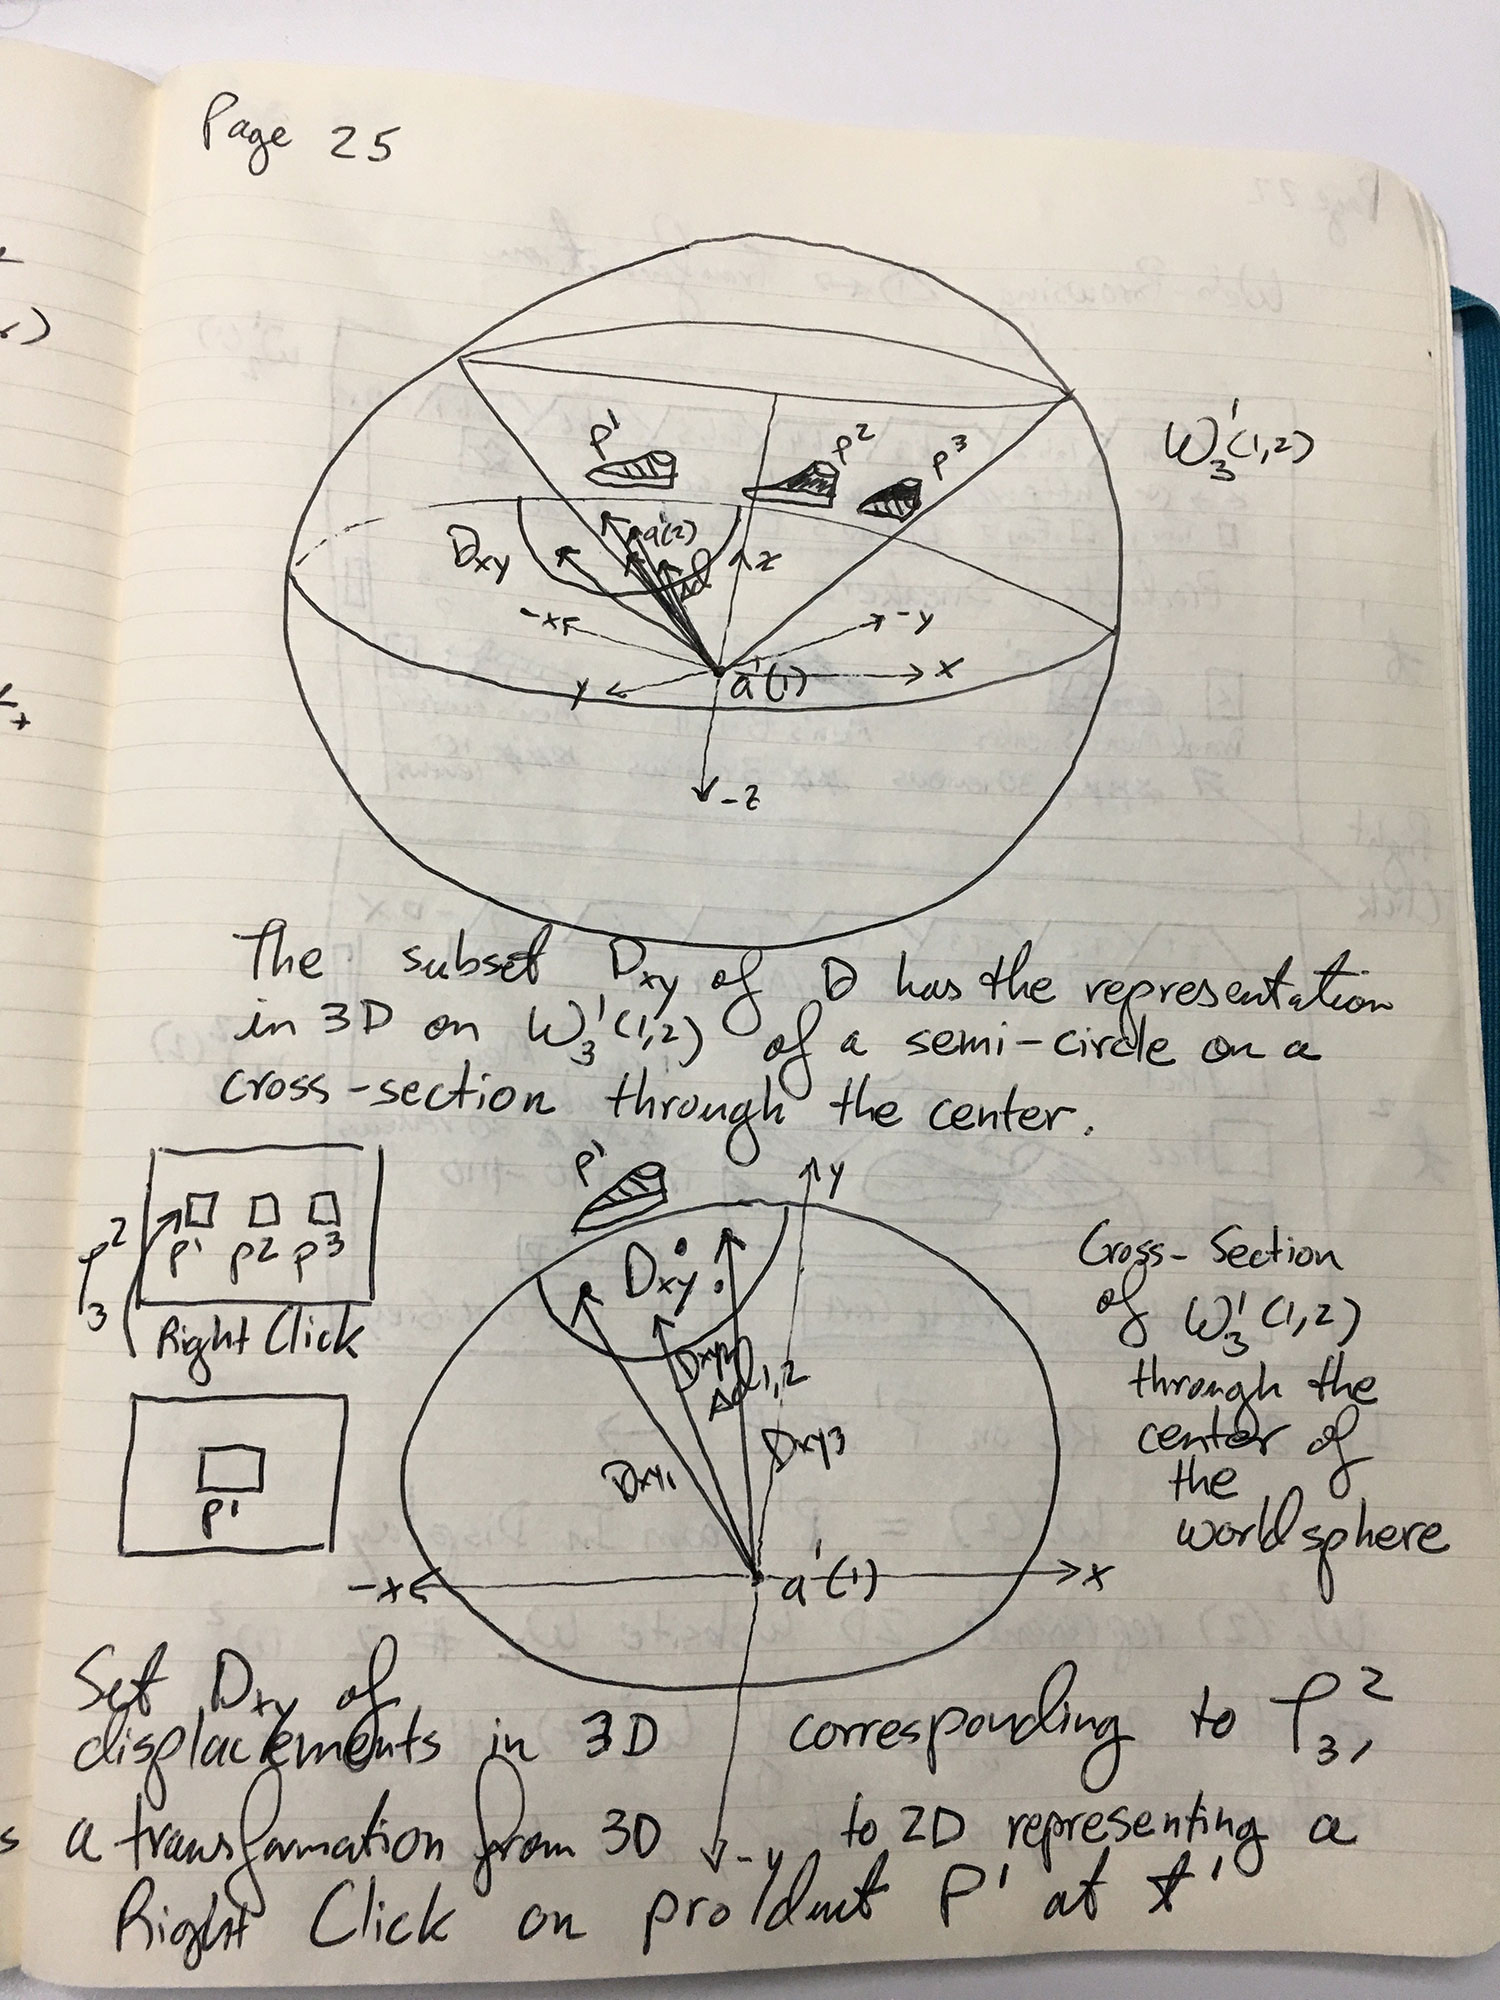 Page 25
W₃¹(1,2)
p¹
p²
p³
Dxy
a¹(2)
Δd
z
-x
-y
y
a¹(1)
x
-z
The subset Dxy of D has the representation
in 3D on W₃¹(1,2) of a semi-circle on a
cross-section through the center.
p¹ p² p³
Right Click
p¹
p¹
y
Dxy
Dxy2
Δd1,2
Dxy1
Dxy3
-x
a¹(1)
x
-y
Cross-Section
of W₃¹(1,2)
through the
center of
the
world sphere
Set Dxy of
displacements in 3D corresponding to Ƭ₃²,
a transformation from 3D to 2D representing a
Right Click on product P¹ at t¹